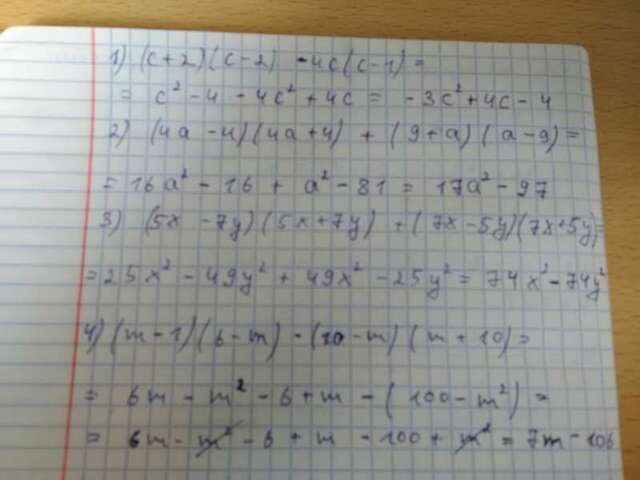 1) (c+2)(c-2) -4c(c-1)=
= c² - 4 - 4c² + 4c = -3c² + 4c - 4
2) (4a - 4)(4a+4) + (9+a)(a-9)=
= 16a² - 16 + a² - 81 = 17a² - 97
3) (5x - 7y)(5x+7y) + (7x-5y)(7x+5y)=
= 25x² - 49y² + 49x² - 25y² = 74x² - 74y²
4) (m-1)(6-m) - (10-m)(m+10)=
= 6m - m² - 6 + m - (100 - m²) =
= 6m - m² - 6 + m - 100 + m² = 7m - 106